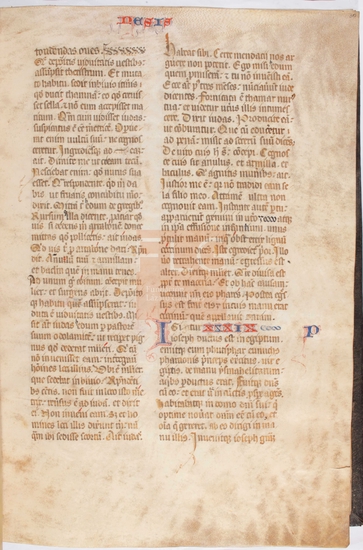 NESIS
tondendas oves
Que depositis viduitatis vestibus
assumpsit theristrum. Et muta
to habitu sedit in bivio itineris
quod ducit thamnam eo quod crevis
set sela et non eum accepisset ma
ritum. Quam cum vidisset iudas
suspicatus est esse meretricem. Operue
rat enim vultum suum ne agnos
ceretur. Ingrediensque ad eam
ait. Dimitte me ut coeam tecum.
Nesciebat enim quod nurus sua
esset. Qua respondente quid michi da
bis ut fruaris concubitu meo
dixit. Mittam tibi edum de gregibus.
Rursum illa dicente. patiar quod
vis si dederis michi arrabonem donec
mittas quod polliceris. ait iudas.
Quid vis tibi pro arrabone dari. Respon
dit. Anulum tuum et armillam
et baculum quem in manu tenes.
Ad unum igitur coitum concepit mu
lier. et surgens abiit. Depositoque
habitu quem assumpserat in
duta est viduitatis vestibus. Mi
sit autem iudas edum per pastorem
suum odolamitem. ut reciperet pig
nus quod dederat mulieri. Qui cum
non invenisset eam interrogavit
homines loci illius. Ubi est mulier
que sedebat in bivio. Responden
tibus cunctis. non fuit in loco isto me
retrix. reversus est ad iudam. et dixit
ei. Non inveni eam. sed et ho
mines loci illius dixerunt michi nunquam
ibi sedisse scortum. Ait iudas.
Habeat sibi. Certe mendacii nos ar
guere non poterit. Ego misi edum
quem promiseram et tu non invenisti eam.
Ecce autem post tres menses nunciaverunt iude
dicentes. Fornicata est thamar nurus
tua et videtur uterus illius intumes
cere. Dixit iudas. Producite eam
ut comburatur. Que cum educeretur
ad penam misit ad socerum suum dicens.
De viro cuius hec sunt concepi. Cognosce
cuius sit anulus et armilla et
baculus. Qui agnitis muneribus ait.
Iustior me est quia non tradidi eam se
la filio meo. Attamen ultra non
cognovit eam. Instante autem partu
apparuerunt gemini in utero
in ipsa effusione infantium. unus
protulit manum. in qua obstetrix ligavit
coccinum dicens. Iste egredietur prior. Illo
vero retrahente manum egressus est
alter. Dixitque mulier. Quare divisa est
propter te maceria. Et ob hanc causam
vocavit nomen eius phares. Postea egres
sus est frater eius in cuius manu erat
coccinum quem appellavit zaram.
XXXIX
Igitur
ioseph ductus est in egyptum
emitque eum phutiphar eunuchus
pharaonis princeps exercitus. vir e
giptius. de manu ysmahelitarum. a
quibus perductus erat. Fuitque dominus
cum eo et erat vir in cunctis prospere agens.
habitabatque in domo domini sui qui
optime noverat dominum esse cum eo et
omnia que gereret. ab eo dirigi in ma
nu illius. Invenitque ioseph graciam